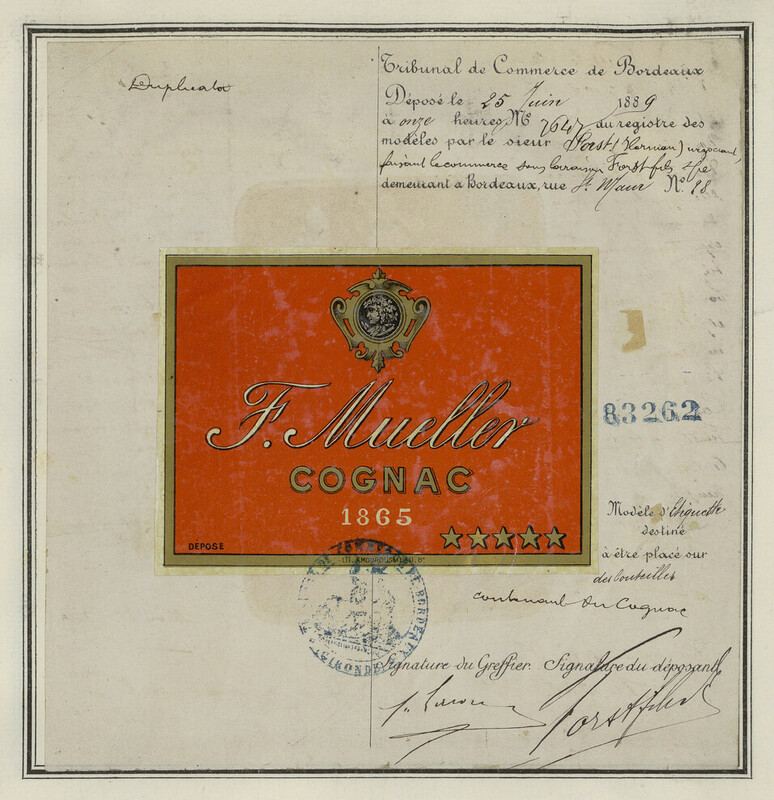 Duplicata
Tribunal de Commerce de Bordeaux
Déposé le 25 Juin 1889
à onze heures, No 7647 du registre des
modèles par le sieur Forst (Herman) négociant,
faisant le commerce sous la raison Forst fils & Cie
demeurant à Bordeaux, rue St Maur No. 88
F. Mueller
COGNAC
1865
DÉPOSÉ
83262
Modèle d'Etiquette
destiné
à être placé sur
des bouteilles
contenant du Cognac
TRIBUNAL DE COMMERCE DE BORDEAUX
(GIRONDE)
Signature du Greffier. Signature du déposant
Forst fils & Cie